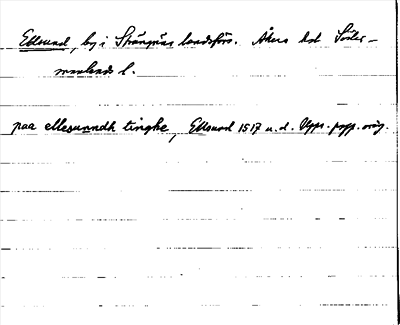 Edsund, by i Strängnäs landsförs. Åkers hd Söder-
manlands l.
paa ellesunndh tingke, Edsund 1517 u.d. Upps. papp. orig.